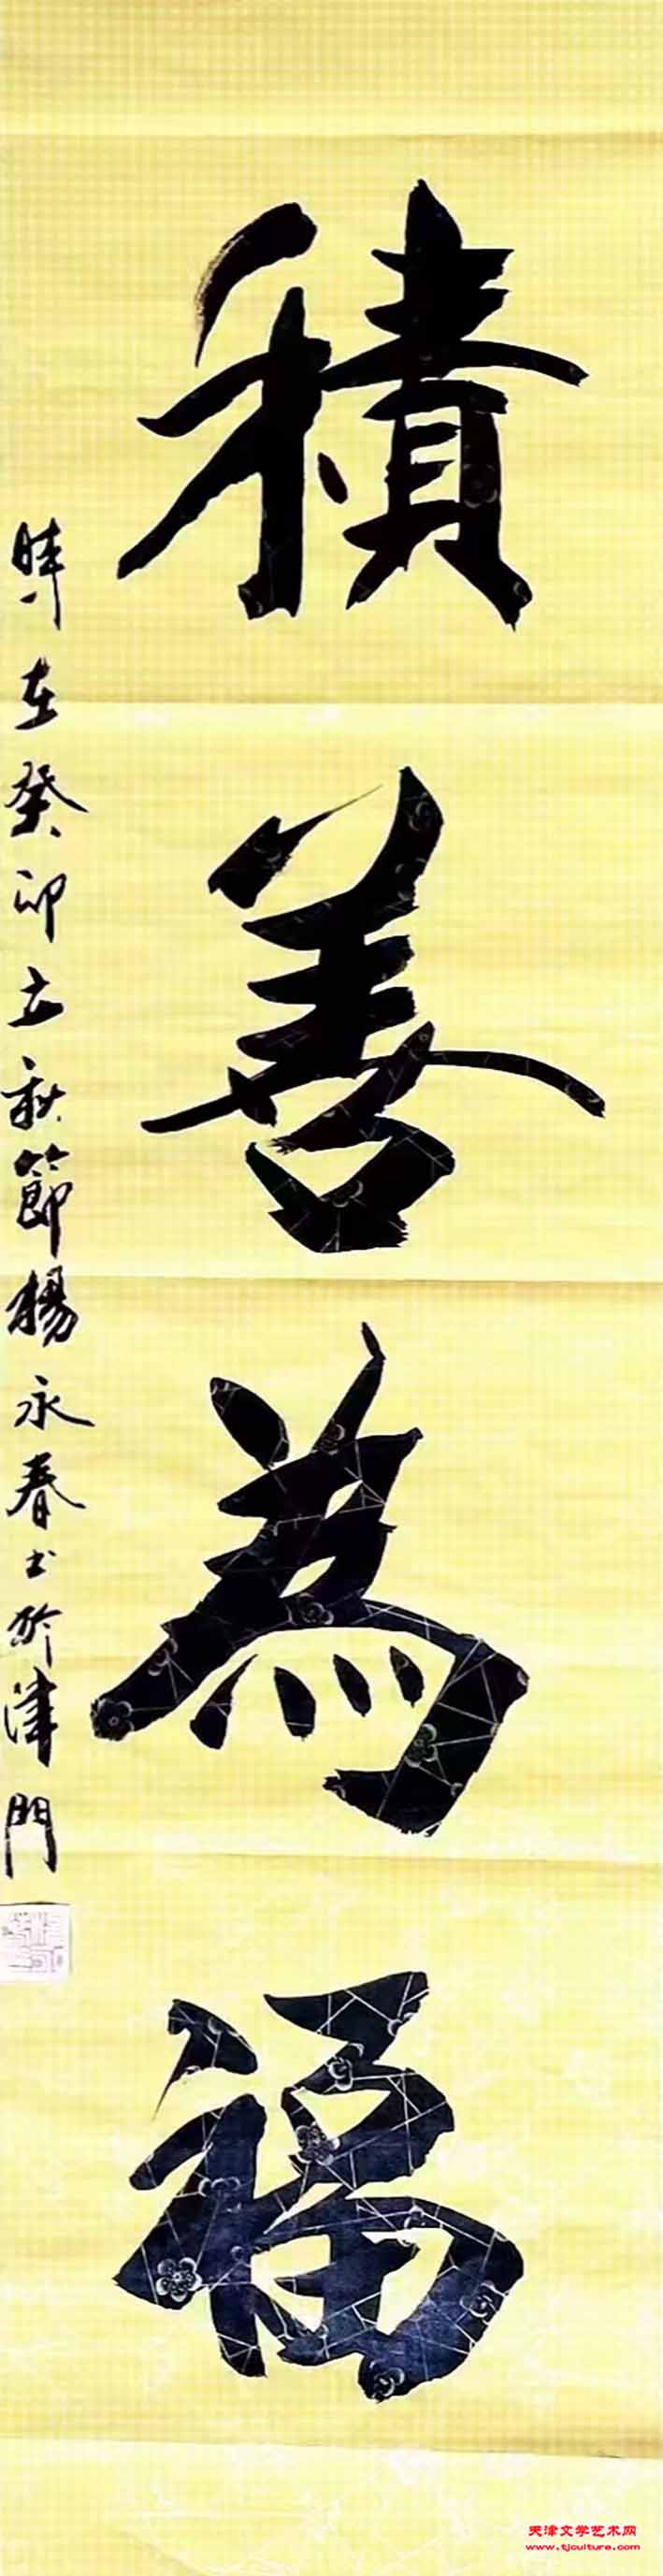 積善為福
時在癸卯立秋節楊永春书於津門
天津文学艺术网
www.tjculture.com